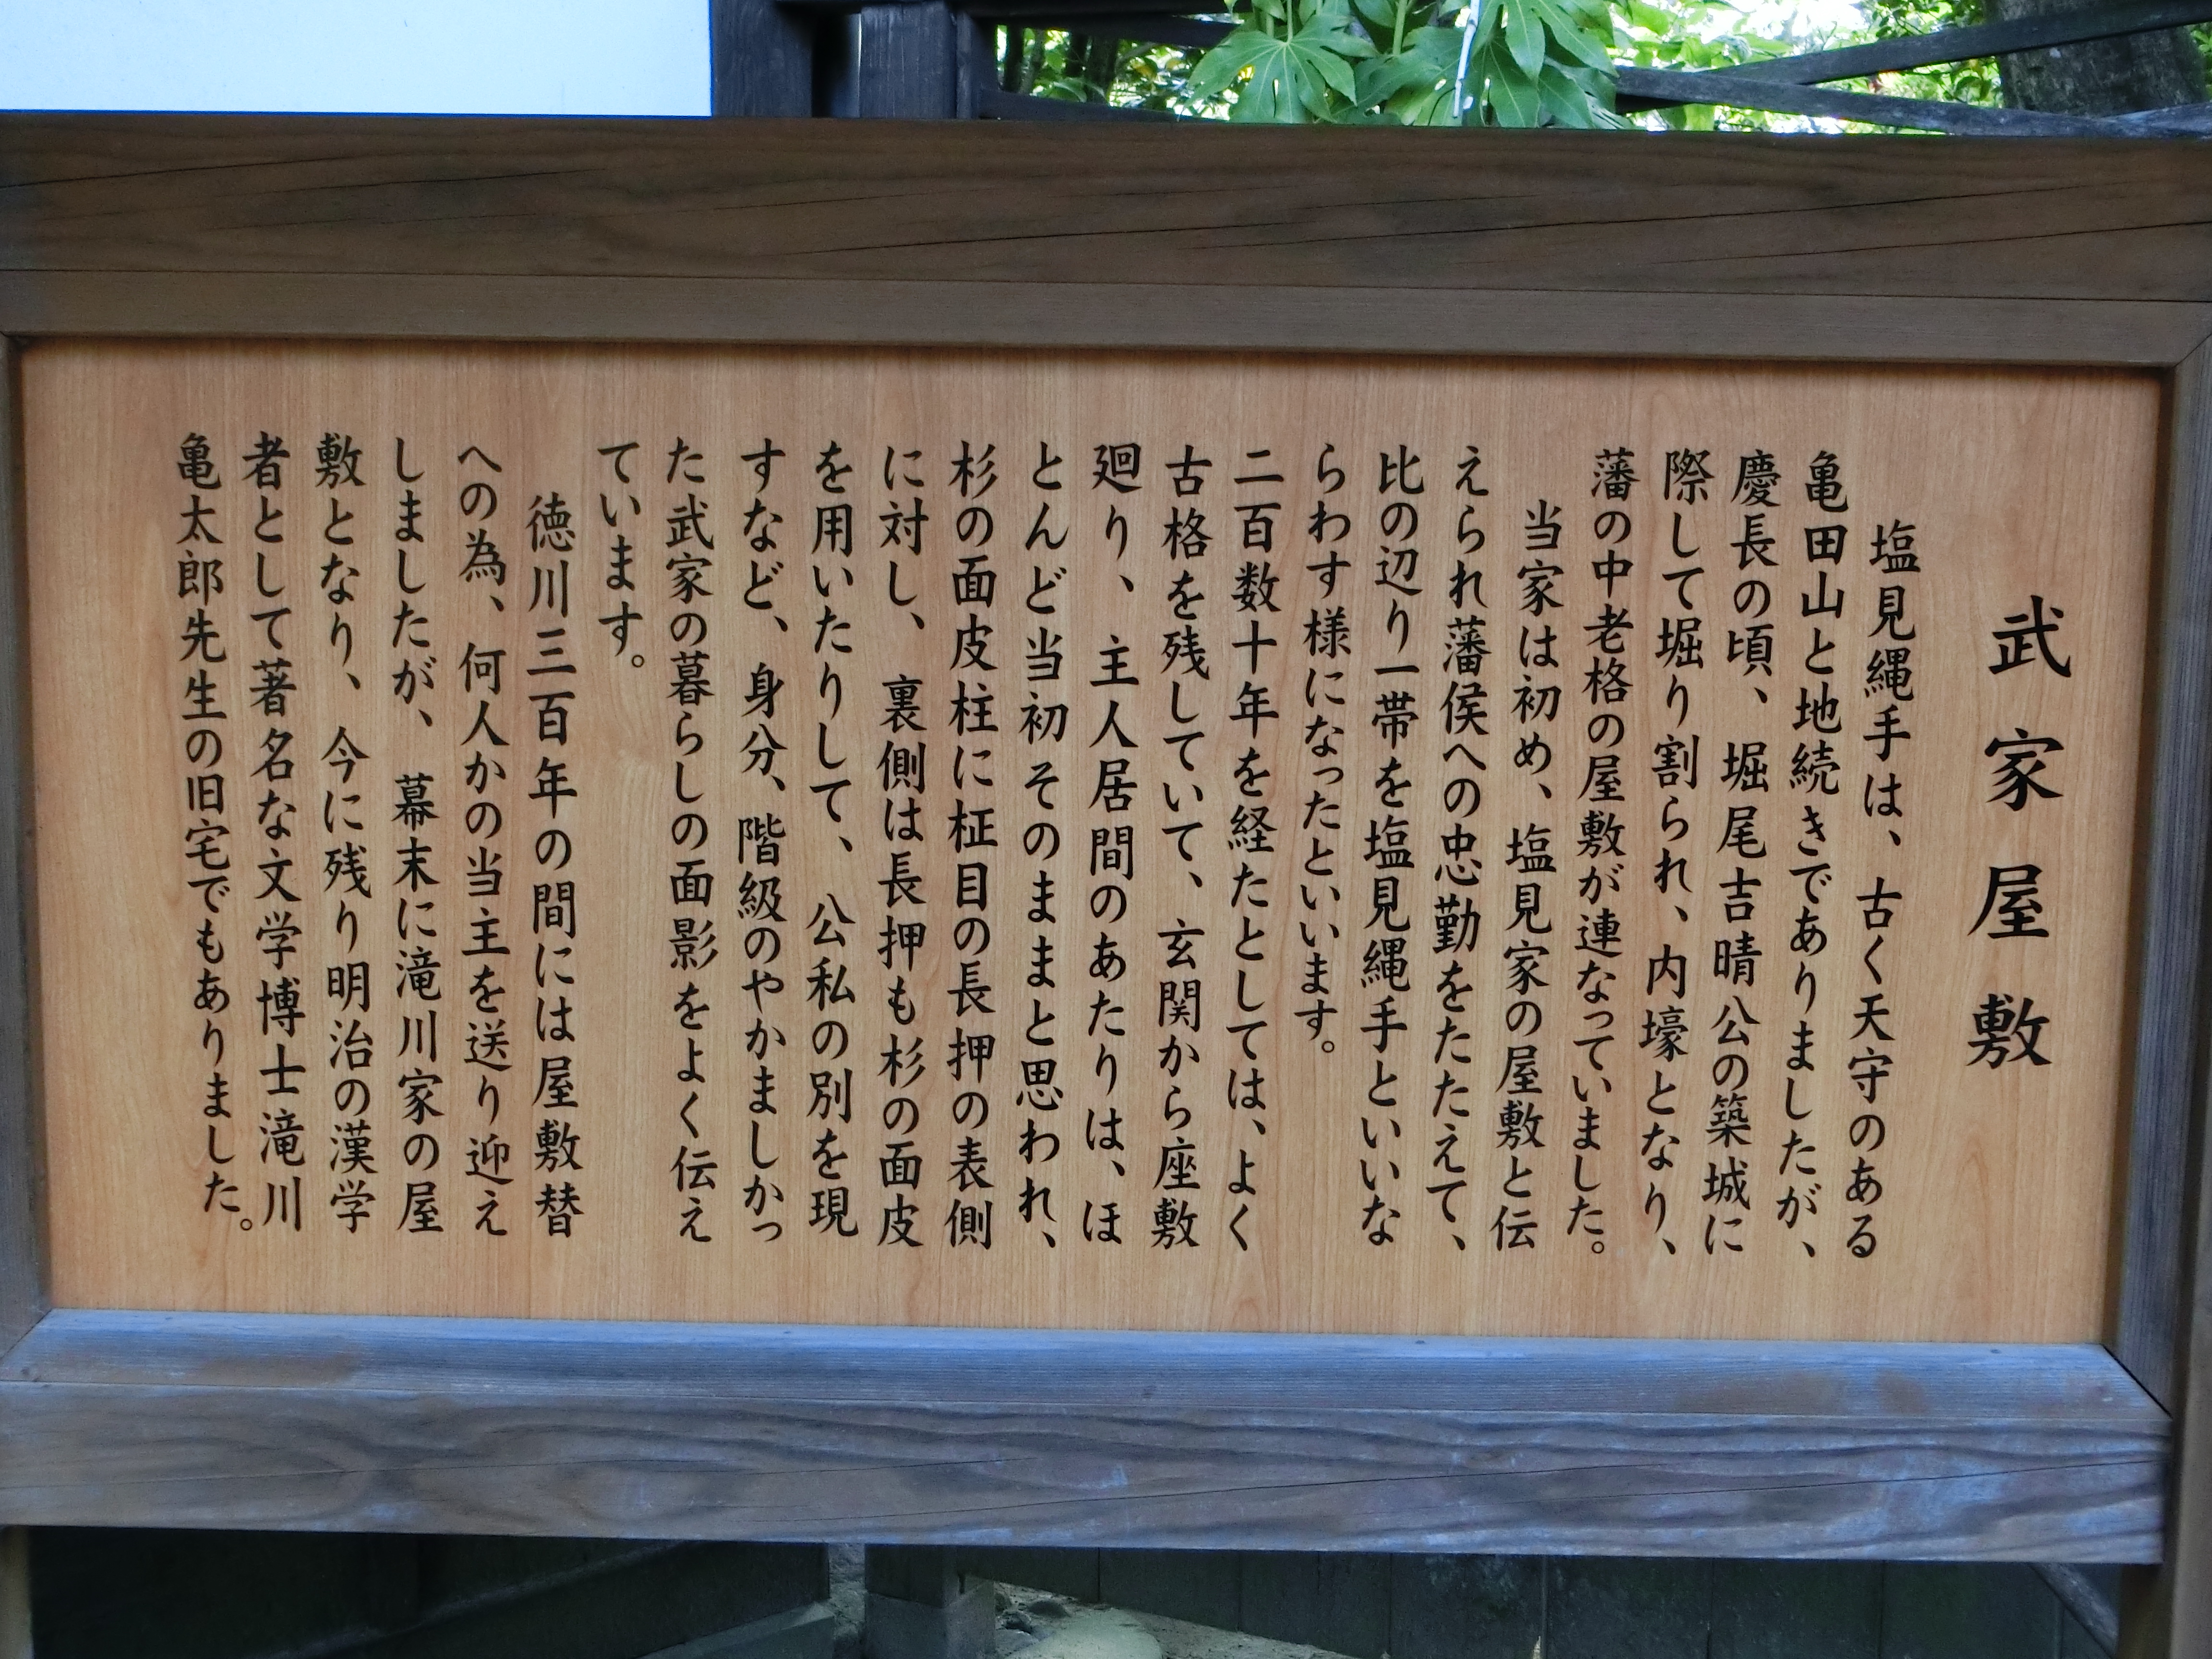 武家屋敷
塩見縄手は、古く天守のある
亀田山と地続きでありましたが、
慶長の頃、堀尾吉晴公の築城に
際して堀り割られ、内壕となり、
藩の中老格の屋敷が連なっていました。
当家は初め、塩見家の屋敷と伝
えられ藩侯への忠勤をたたえて、
比の辺り一帯を塩見縄手といいな
らわす様になったといいます。
二百数十年を経たとしては、よく
古格を残していて、玄関から座敷
廻り、主人居間のあたりは、ほ
とんど当初そのままと思われ、
杉の面皮柱に柾目の長押の表側
に対し、裏側は長押も杉の面皮
を用いたりして、公私の別を現
すなど、身分、階級のやかましかっ
た武家の暮らしの面影をよく伝え
ています。
徳川三百年の間には屋敷替
への為、何人かの当主を送り迎え
しましたが、幕末に滝川家の屋
敷となり、今に残り明治の漢学
者として著名な文学博士滝川
亀太郎先生の旧宅でもありました。